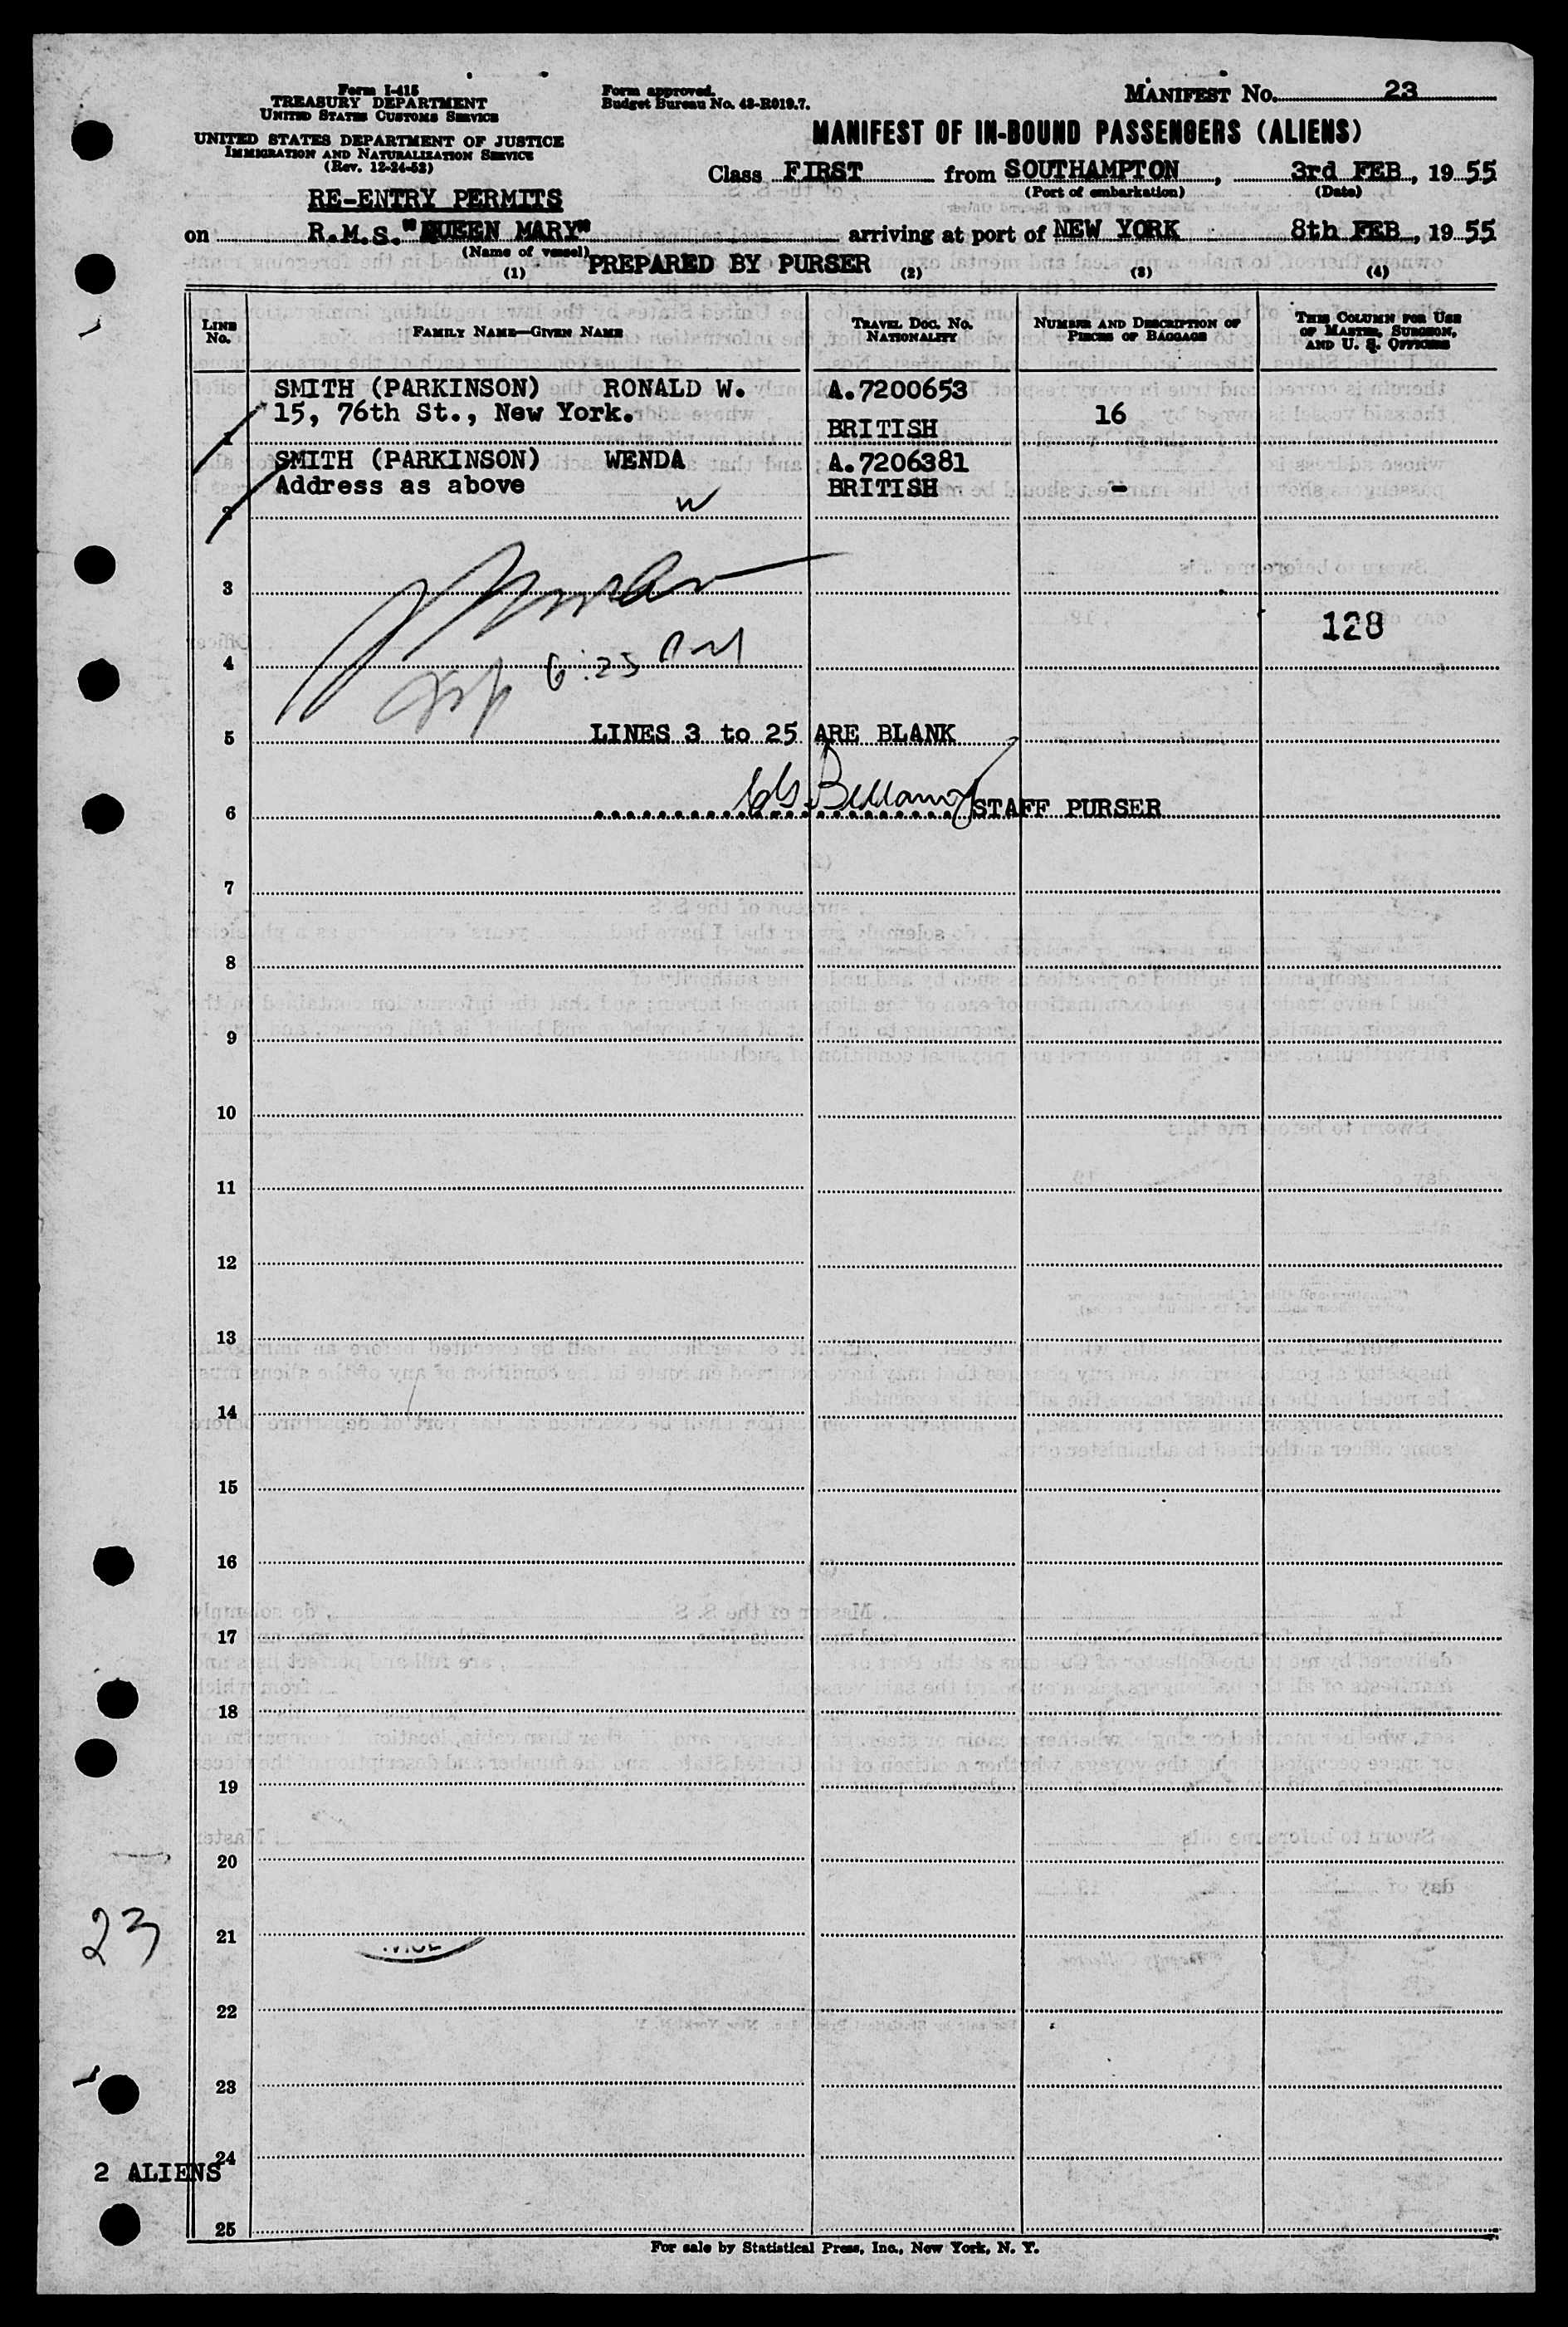 Form I-415
TREASURY DEPARTMENT
UNITED STATES CUSTOMS SERVICE
UNITED STATES DEPARTMENT OF JUSTICE
IMMIGRATION AND NATURALIZATION SERVICE
(Rev. 12-24-52)
Form approved.
Budget Bureau No. 43-R019.7.
MANIFEST No. 23
MANIFEST OF IN-BOUND PASSENGERS (ALIENS)
Class FIRST from SOUTHAMPTON, 3rd FEB, 19 55
(Port of embarkation) (Date)
RE-ENTRY PERMITS
on R.M.S. "QUEEN MARY" arriving at port of NEW YORK 8th FEB, 19 55
(Name of vessel)
PREPARED BY PURSER
(1) (2) (3) (4)
LINE No. FAMILY NAME—GIVEN NAME TRAVEL DOC. No. NATIONALITY NUMBER AND DESCRIPTION OF PIECES OF BAGGAGE THIS COLUMN FOR USE OF MASTER, SURGEON, AND U. S. OFFICERS
SMITH (PARKINSON) RONALD W. A.7200653
15, 76th St., New York. 16
1 BRITISH
SMITH (PARKINSON) WENDA A.7206381
Address as above BRITISH -
2 W
3
128
4 6:25
5 LINES 3 to 25 ARE BLANK
6 Bellamy STAFF PURSER
7
8
9
10
11
12
13
14
15
16
17
18
19
20
23
21
22
23
24
2 ALIENS
25
For sale by Statistical Press, Inc., New York, N. Y.